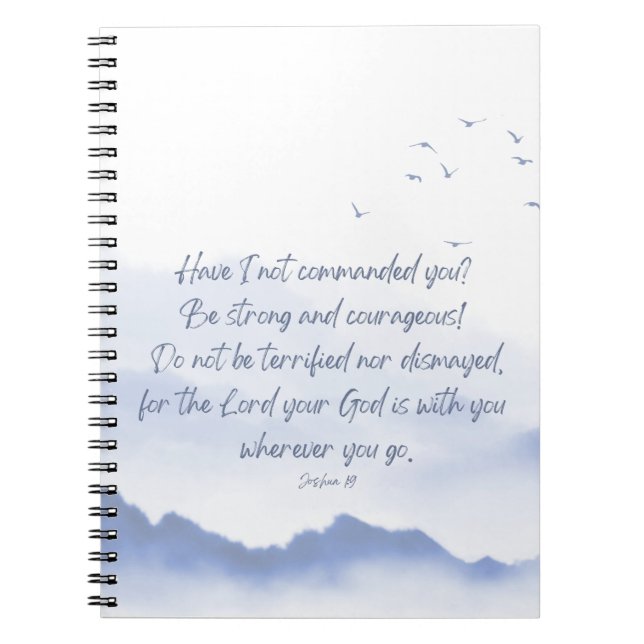 Have I not commanded you?
Be strong and courageous!
Do not be terrified nor dismayed,
for the Lord your God is with you
wherever you go.
Joshua 1:9